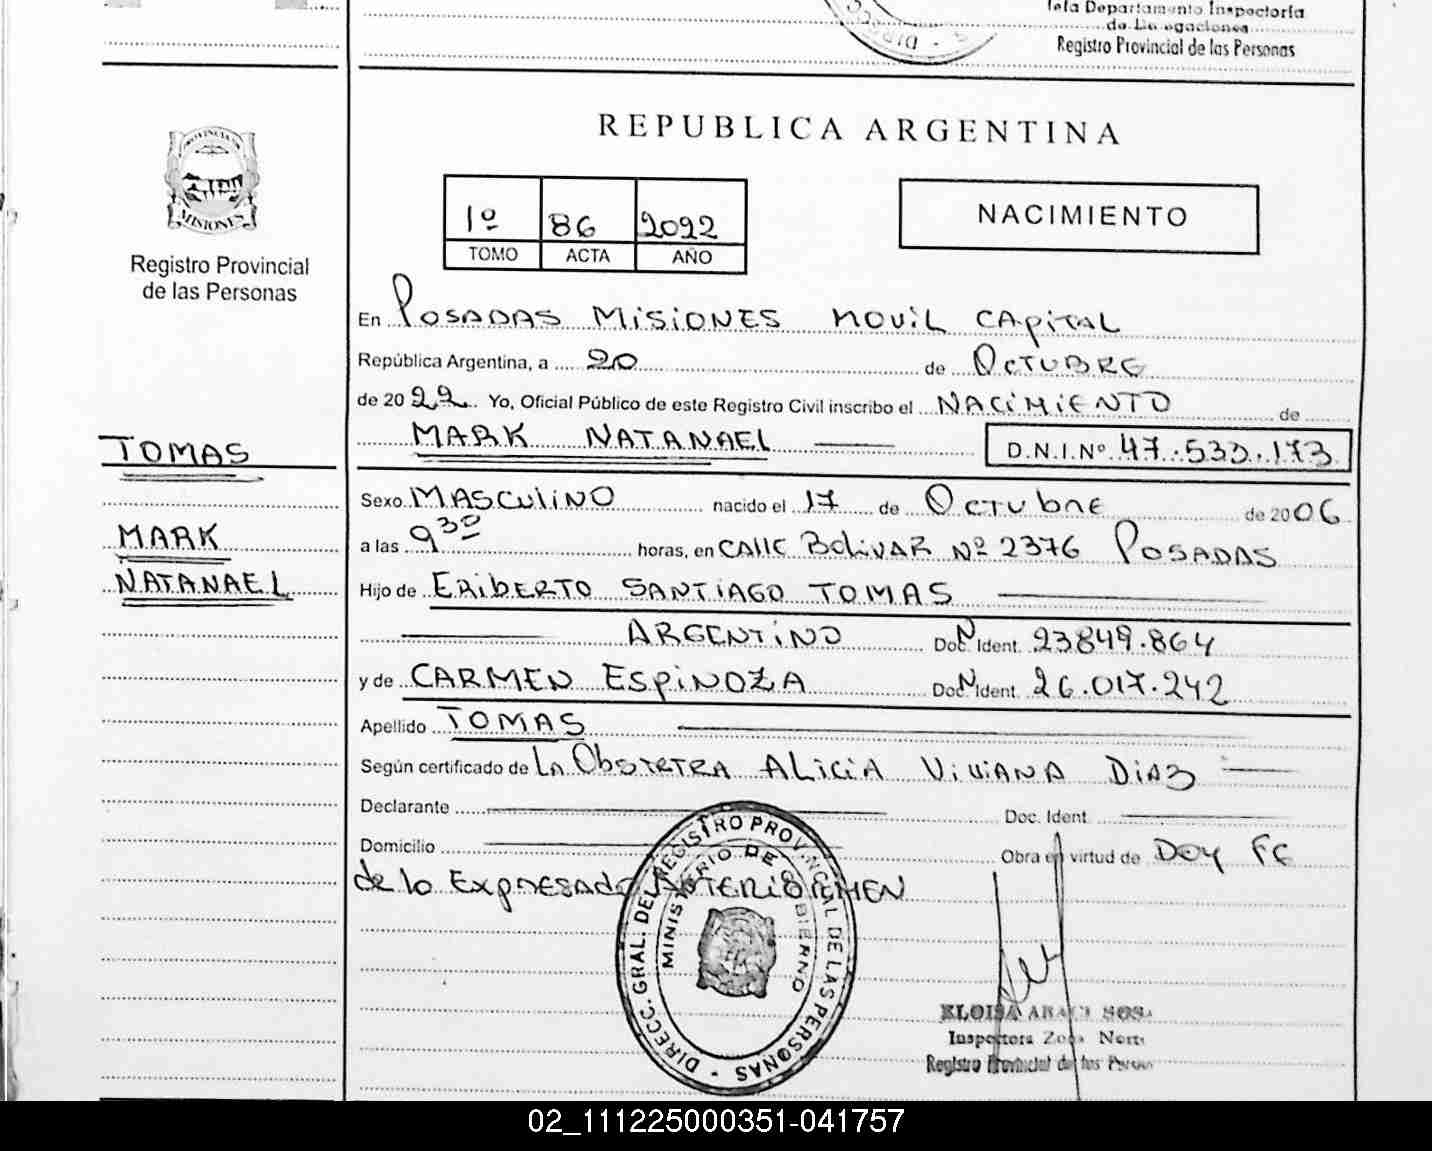 Departamento Inspectoría
Registro Provincial de las Personas
PROVINCIA DE
MISIONES
Registro Provincial
de las Personas
REPUBLICA ARGENTINA
1º 86 2022
TOMO ACTA AÑO
NACIMIENTO
En POSADAS MISIONES MOVIL CAPITAL
República Argentina, a 20 de OCTUBRE
de 2022 Yo, Oficial Público de este Registro Civil inscribo el NACIMIENTO de
MARK NATANAEL D.N.I.Nº 47.533.173
TOMAS
MARK
NATANAEL
Sexo MASCULINO nacido el 17 de OCTUBRE de 2006
a las 9 30 horas, en CALLE BOLIVAR Nº 2376 POSADAS
Hijo de ERIBERTO SANTIAGO TOMAS
ARGENTINO Doc. Ident. 23849.864
y de CARMEN ESPINOZA Doc. Ident. 26.017.242
Apellido TOMAS
Según certificado de LA OBSTETRA ALICIA VIVIANA DIAZ
Declarante Doc. Ident.
Domicilio Obra en virtud de DOY FE
de lo EXPRESADO ANTERIORMEN
DIRECC. GRAL. DEL REGISTRO PROVINCIAL DE LAS PERSONAS
MINISTERIO DE GOBIERNO
ELOISA SOSA
Inspectora Zona Norte
Registro Provincial de las Personas
02_111225000351-041757